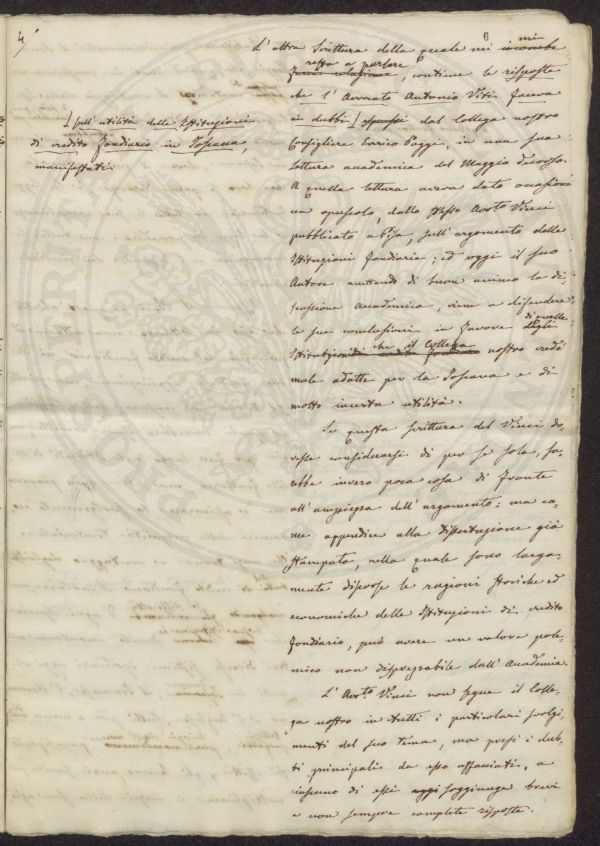 4/
6
L'altra Scrittura della quale mi incombe
mi
resta a parlare
, contiene le risposte
che l'Avvocato Antonio Vinci faceva
ai dubbi / sparsi dal Collega nostro
/ sull'utilità delle Istituzioni
di credito fondiario in Toscana,
manifestati.
Consigliere Enrico Poggi, in una sua
lettura accademica del Maggio decorso.
A quella lettura aveva dato occasione
un opuscolo, dallo stesso Avv.to Vinci
pubblicato a Pisa, sull'argomento delle
Istituzioni fondiarie; ed oggi il suo
Autore accettando di buon animo la di-
scussione Accademica, viene a difendere
le sue conclusioni in favore degli
di quelle
Istituzioni che il Collega nostro crede
male adatte per la Toscana e di
molto incerta utilità.
Se questa scrittura del Vinci do-
vesse considerarsi di per se sola, sa-
rebbe invero poca cosa di fronte
all'ampiezza dell'argomento: ma co-
me appendice alla Dissertazione già
stampata, nella quale sono larga-
mente discorse le ragioni storiche ed
economiche delle Istituzioni di credito
fondiario, può avere un valore pole-
mico non disprezzabile dall'Accademia.
L'Avv.to Vinci non segue il Colle-
ga nostro in tutti i particolari svolgi-
menti del suo tema, ma presi i dub-
bi principali da esso affacciati, a
ciascuno di essi oggi soggiunge brevi
e non sempre complete risposte.